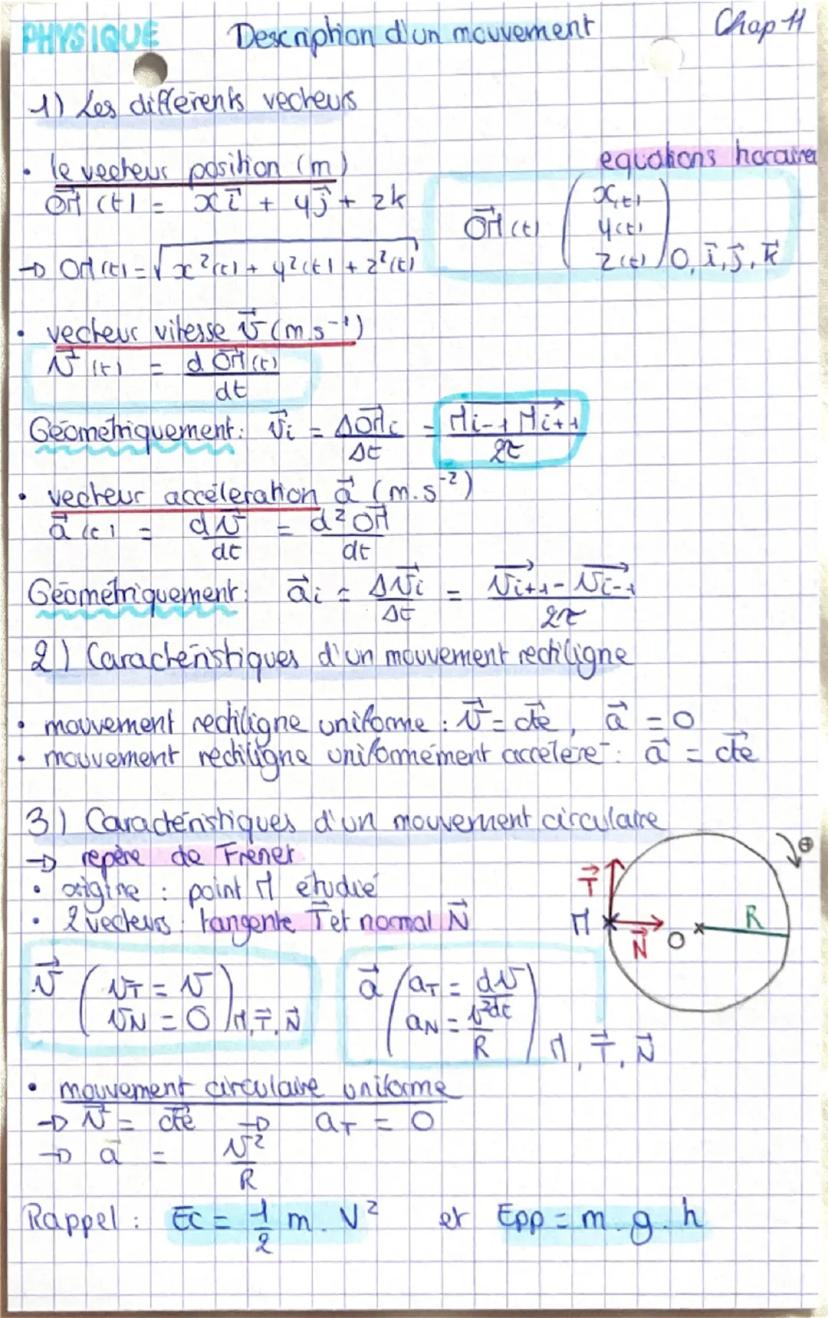 PHYSIQUE Description d'un mouvement Chap 11
1) Les différents vecteurs
• le vecteur position (m)
equations horaires
OM⃗ (t) = xi⃗ + yj⃗ + zk
OM⃗ (t) ( x(t) y(t) z(t) ) O, i⃗, j⃗, k⃗
→ OM(t) = √(x²(t) + y²(t) + z²(t))
• vecteur vitesse v⃗ (m.s⁻¹)
v⃗ (t) = d OM⃗(t) / dt
Géométriquement : v⃗i = ΔOM⃗i / Δt = Mi-1 Mi+1⃗ / 2τ
• vecteur accéleration a⃗ (m.s⁻²)
a⃗ (t) = dv⃗ / dt = d² OM⃗ / dt
Géométriquement : a⃗i = Δv⃗i / Δt = v⃗i+1 - v⃗i-1 / 2τ
2) Caractéristiques d'un mouvement rectiligne
• mouvement rectiligne uniforme : v⃗ = cte⃗, a⃗ = 0
• mouvement rectiligne uniformément accéléré : a⃗ = cte⃗
3) Caractéristiques d'un mouvement circulaire
→ repère de Frenet
• origine : point M étudié
• 2 vecteurs : tangente T⃗ et normal N⃗
T⃗ M N⃗ O R ⊕
v⃗ ( vT = v vN = 0 ) M, T⃗, N⃗
a⃗ ( aT = dv / dt aN = v² / R ) M, T⃗, N⃗
• mouvement circulaire uniforme
→ v⃗ = cte⃗ → aT = 0
→ a = v² / R
Rappel : Ec = 1/2 m . V² et Epp = m . g . h